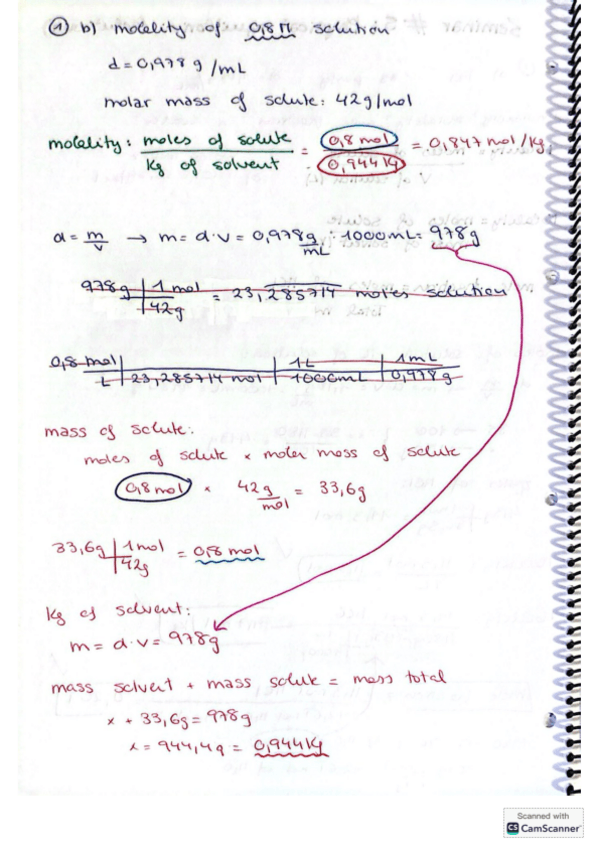 ① b) molality of 0,8M solution
d = 0,978 g/mL
molar mass of solute: 42g/mol
molality: moles of solute / Kg of solvent = 0,8 mol / 0,944 Kg = 0,847 mol/Kg
d = m/v → m = d·v = 0,978 g/mL · 1000mL = 978g
978g | 1 mol / 42g = 23,285714 moles solution
0,8 mol / L | 23,285714 mol | 1L / 1000mL | 1mL / 0,978 g
mass of solute:
moles of solute × molar mass of solute
0,8 mol × 42 g/mol = 33,6g
33,6g | 1mol / 42g = 0,8 mol
Kg of solvent:
m = d·v = 978g
mass solvent + mass solute = mass total
x + 33,6g = 978g
x = 944,4g = 0,944Kg
Scanned with
CS CamScanner